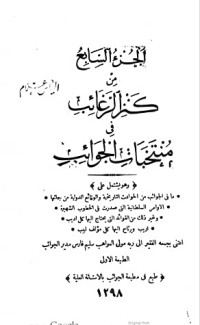 الجزء السابع
من
كنز الرغائب
في
منتخبات الجوائب
﴿ وهو يشتمل على ﴾
ما في الجوائب من الحوادث التاريخية والوقائع الدولية من
الاوامر السلطانية التى صدرت فى الخطوب الشهيرة
وغير ذلك من الفوائد التى يحتاج اليها كل اديب
اريب ويرتاح اليها كل مؤلف لبيب
اعتنى بجمعه الفقير الى ربه مولى المواهب سليم فارس مدير الجوائب
الطبعة الاولى
﴿ طبع فى مطبعة الجوائب بالاستانة العلية ﴾
١٢٩٨
Google